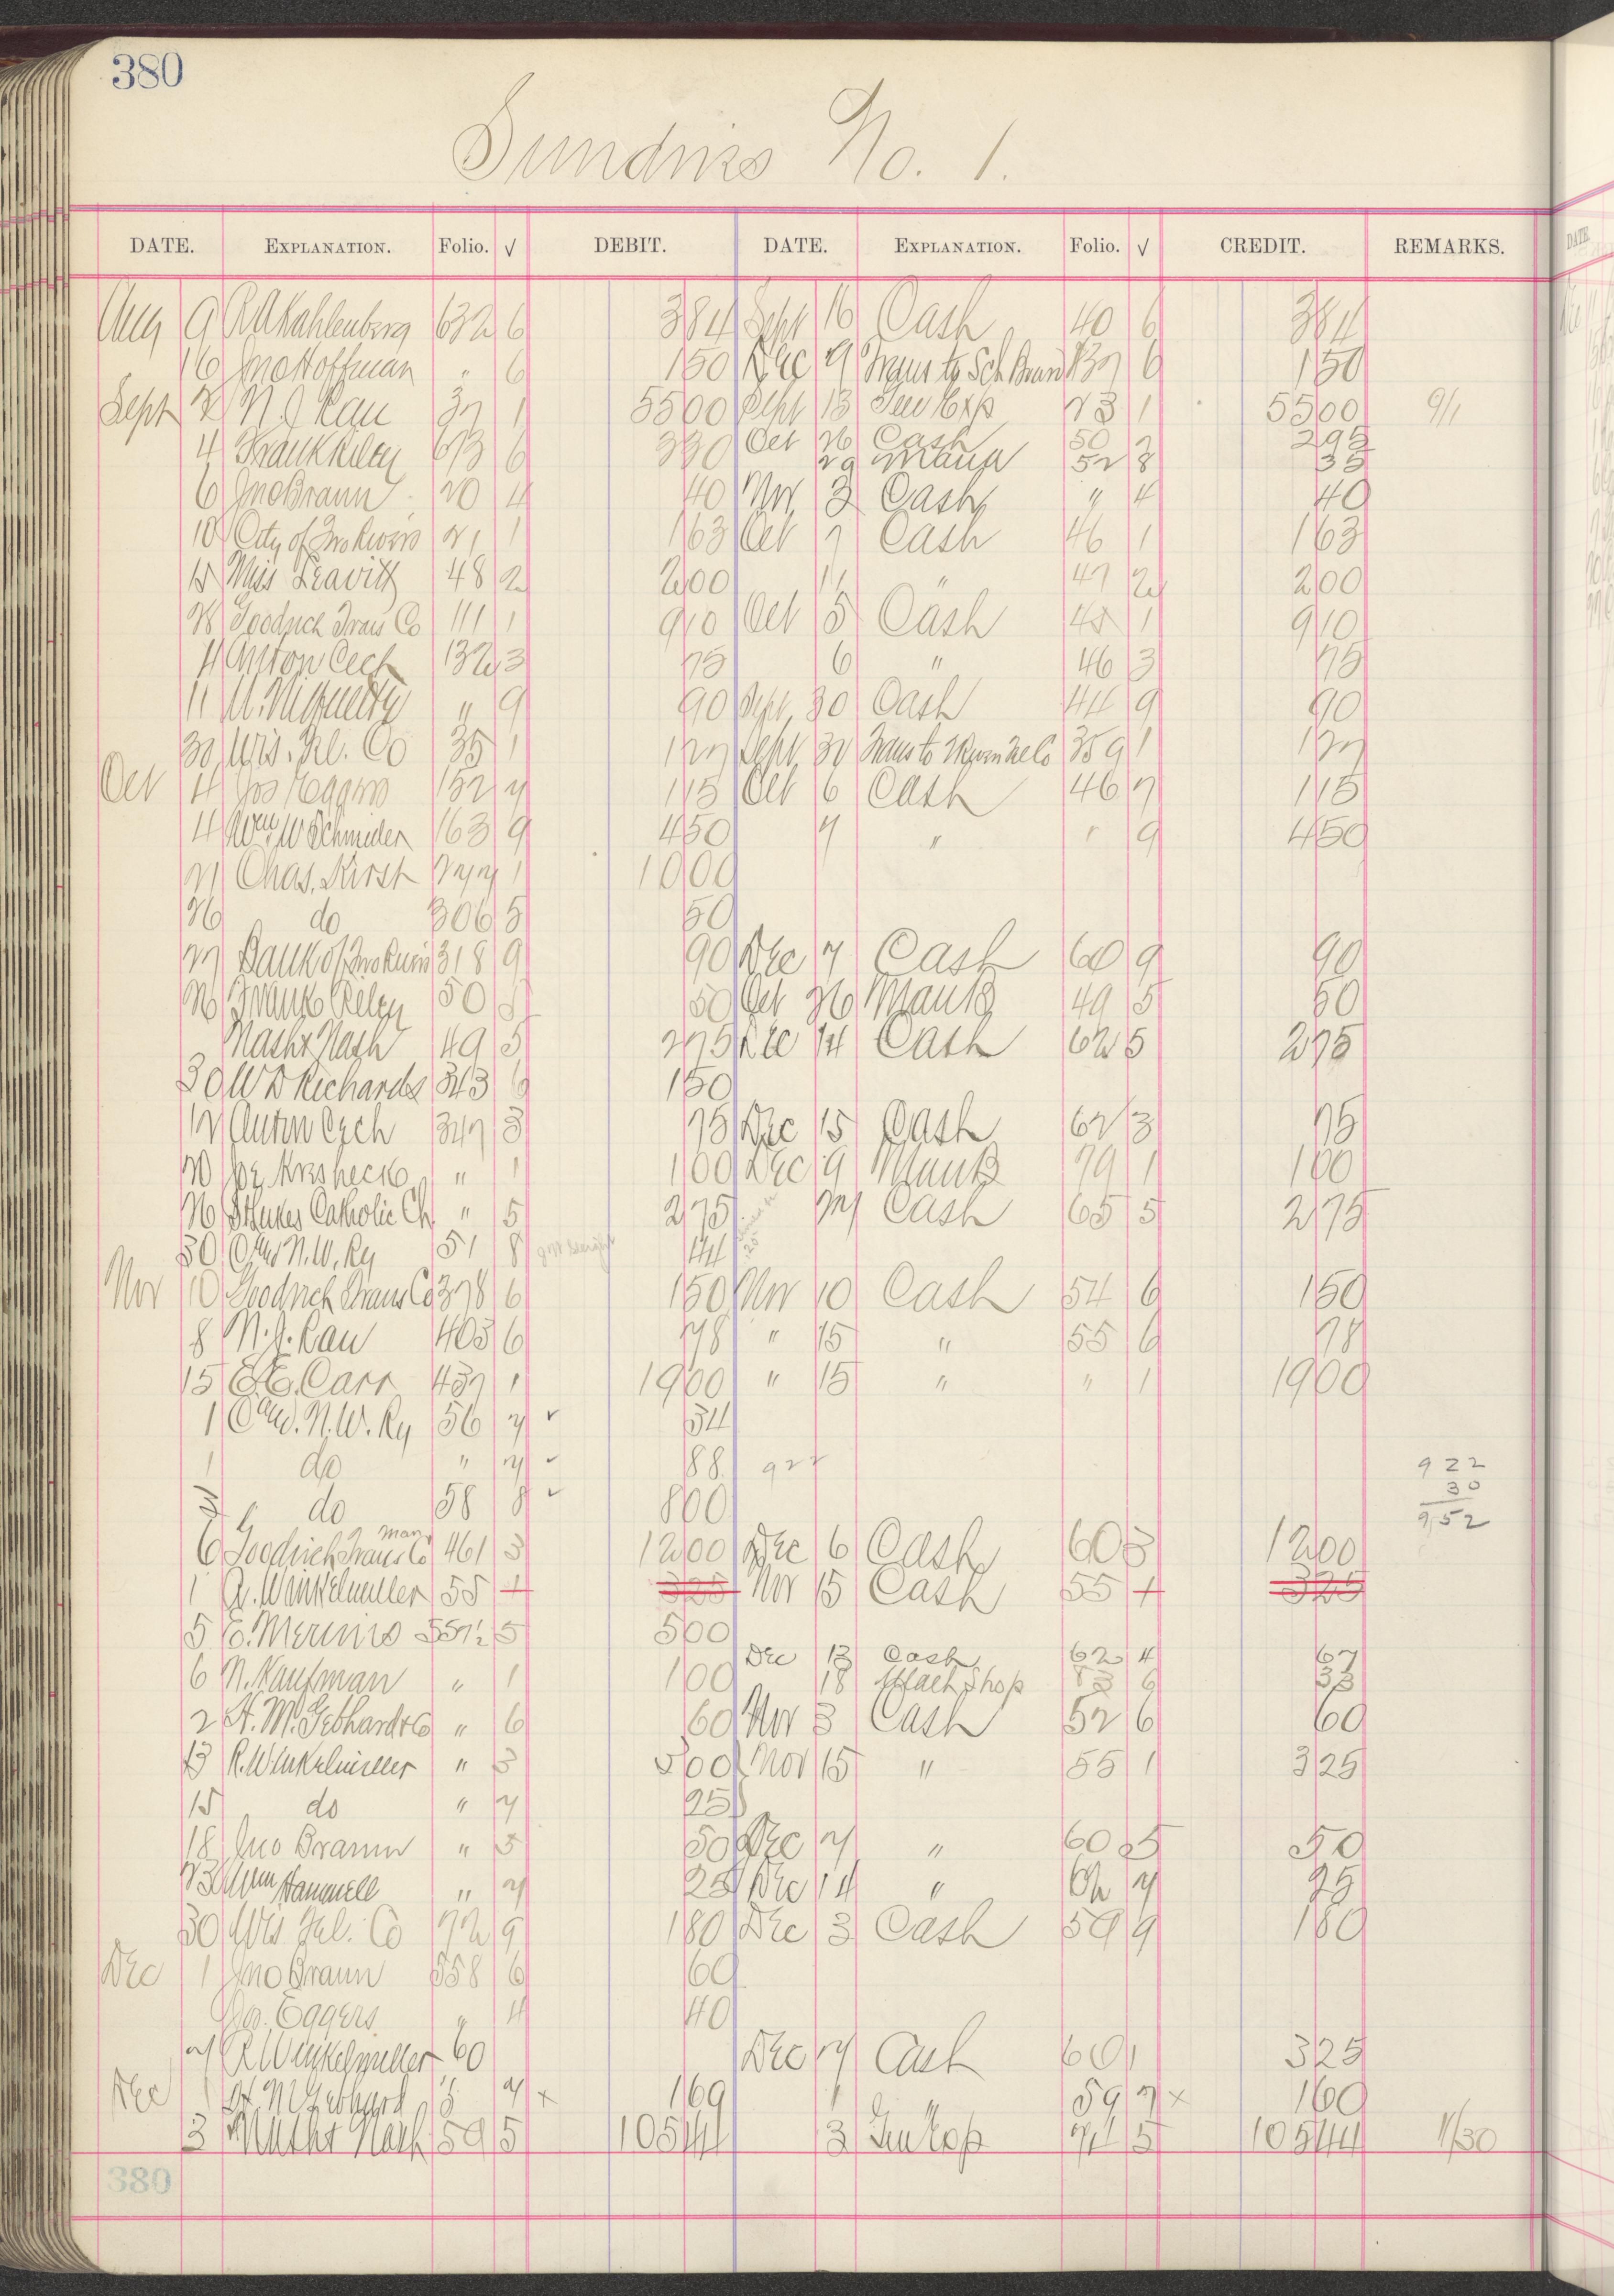 380
Sundries No. 1.
DATE. EXPLANATION. Folio. √ DEBIT. DATE. EXPLANATION. Folio. √ CREDIT. REMARKS.
Aug 9 R A Kahlenberg 632 6 384 Sept 16 Cash 40 6 384
16 Jno Hoffman " 6 150 Dec 9 Trans to Sch Brun 6 150
Sept 2 N. J. Rau 37 1 5500 Sept 13 Gen Exp 23 1 5500 9/1
4 Frank Riley 673 6 330 Oct 26 Cash 50 295
29 52 8 35
6 Jno Braun 20 4 40 Nov 3 Cash " 4 40
10 City of Two Rivers 21 1 163 Oct 7 Cash 46 1 163
15 Miss Leavitt 48 2 200 11 " 47 2 200
28 Goodrich Trans Co 111 1 910 Oct 5 Cash 45 1 910
4 Anton Cech 132 3 75 6 " 46 3 75
11 " 9 90 Sept 30 Cash 44 9 90
30 Wis. Tel. Co 35 1 127 Sept 30 Trans to Tel Co 359 1 127
Oct 4 Jos Eggers 152 7 115 Oct 6 Cash 46 7 115
4 Wm W Schmieder 163 9 450 7 " " 9 450
21 Chas. Kirst 277 1 1000
26 do 306 5 50
27 Bank of Two Rivers 318 9 90 Dec 7 Cash 60 9 90
26 Frank Riley 50 5 50 Oct 26 Manb 49 5 50
Nash & Nash 49 5 275 Dec 14 Cash 62 5 275
30 W D Richards 343 6 150
12 Anton Cech 347 3 75 Dec 15 Cash 62 3 75
20 " 1 100 Dec 9 Manb 79 1 100
26 St Lukes Catholic Ch " 5 275 21 Cash 65 5 275
30 C & N. W. Ry 51 8 44
Nov 10 Goodrich Trans Co 378 6 150 Nov 10 Cash 54 6 150
8 N. J. Rau 403 6 78 " 15 " 55 6 78
15 E. E. Carr 437 1 1900 " 15 " " 1 1900
1 C & N. W. Ry 56 7 √ 34
1 do " 7 √ 88 922 922
30
3 do 58 8 √ 800 952
6 Goodrich Trans Co Man 461 3 1200 Dec 6 Cash 60 3 1200
1 R. Winkelmiller 55 1 325 Nov 15 Cash 55 1 325
5 E. Mermis 557½ 5 500
Dec 13 Cash 62 4 67
6 N. Kaufman " 1 100 18 Mach Shop 83 6 33
2 H. M. Gebhardt Co " 6 60 Nov 3 Cash 52 6 60
13 R. Winkelmiller " 3 300 Nov 15 " 55 1 325
15 do " 7 25
18 Jno Braun " 5 50 Dec 7 " 60 5 50
23 Wm Hammell " 7 25 Dec 14 " 62 7 25
30 Wis Tel. Co 72 9 180 Dec 3 Cash 59 9 180
Dec 1 Jno Braun 558 6 60
Jos. Eggers " 4 40
7 R Winkelmiller 60 Dec 7 Cash 60 1 325
Dec 1 H. M Gebhard 7 x 160 1 " 59 7 x 160
3 Nash & Nash 59 5 10544 3 Gen Exp 74 5 10544 11/30
380